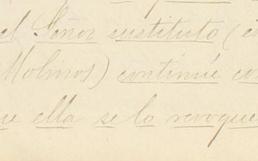 el Señor sustituto (
Molinos) continúe co
ue ella se lo revoque